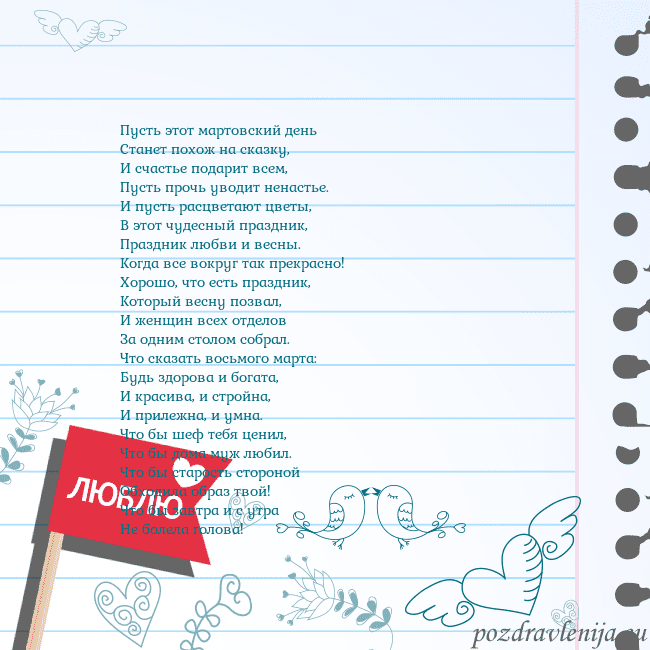 Пусть этот мартовский день
Станет похож на сказку,
И счастье подарит всем,
Пусть прочь уводит ненастье.
И пусть расцветают цветы,
В этот чудесный праздник,
Праздник любви и весны.
Когда все вокруг так прекрасно!
Хорошо, что есть праздник,
Который весну позвал,
И женщин всех отделов
За одним столом собрал.
Что сказать восьмого марта:
Будь здорова и богата,
И красива, и стройна,
И прилежна, и умна.
Что бы шеф тебя ценил,
Что бы дома муж любил.
Что бы старость стороной
Обходила образ твой!
Что бы завтра и с утра
Не балела голова!
ЛЮБЛЮ
pozdravlenija.eu